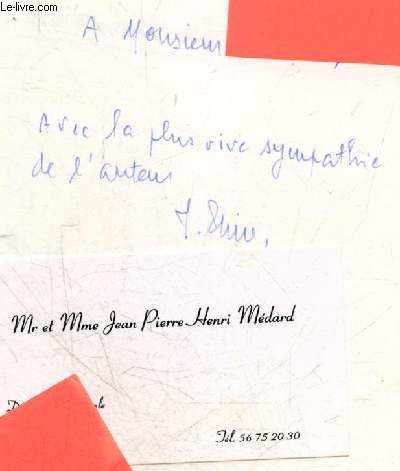 Le-livre.com
A Monsieur
Avec la plus vive sympathie
de l'auteur
Mr et Mme Jean Pierre-Henri Médard
Tél. 56 75 20 30